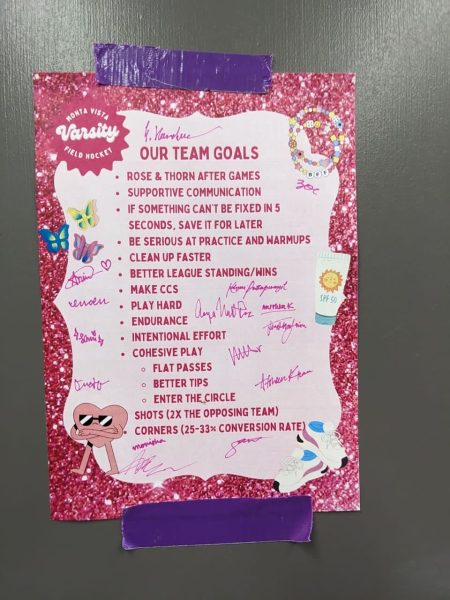 MONTA VISTA
Varsity
FIELD HOCKEY
OUR TEAM GOALS
• ROSE & THORN AFTER GAMES
• SUPPORTIVE COMMUNICATION
• IF SOMETHING CAN'T BE FIXED IN 5
SECONDS, SAVE IT FOR LATER
• BE SERIOUS AT PRACTICE AND WARMUPS
• CLEAN UP FASTER
• BETTER LEAGUE STANDING/WINS
• MAKE CCS
• PLAY HARD
• ENDURANCE
• INTENTIONAL EFFORT
• COHESIVE PLAY
○ FLAT PASSES
○ BETTER TIPS
○ ENTER THE CIRCLE
SHOTS (2X THE OPPOSING TEAM)
• CORNERS (25-33% CONVERSION RATE)
SPF 50
monisha